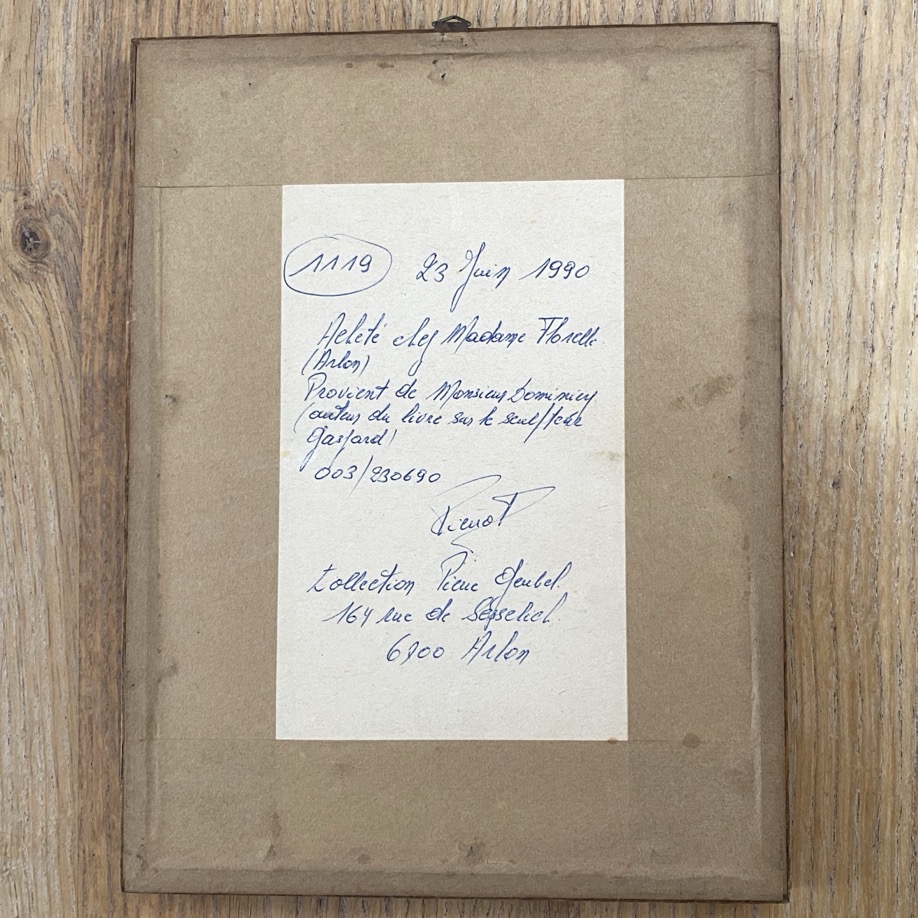 1119 23 Juin 1990
Acheté chez Madame Florelle
(Arlon)
Provient de Monsieur Dominicy
(auteur du livre sur le sculpteur
Gaspard)
003/230690
Pierrot
Collection Pierre Geubel.
164 rue de Sesselich.
6700 Arlon